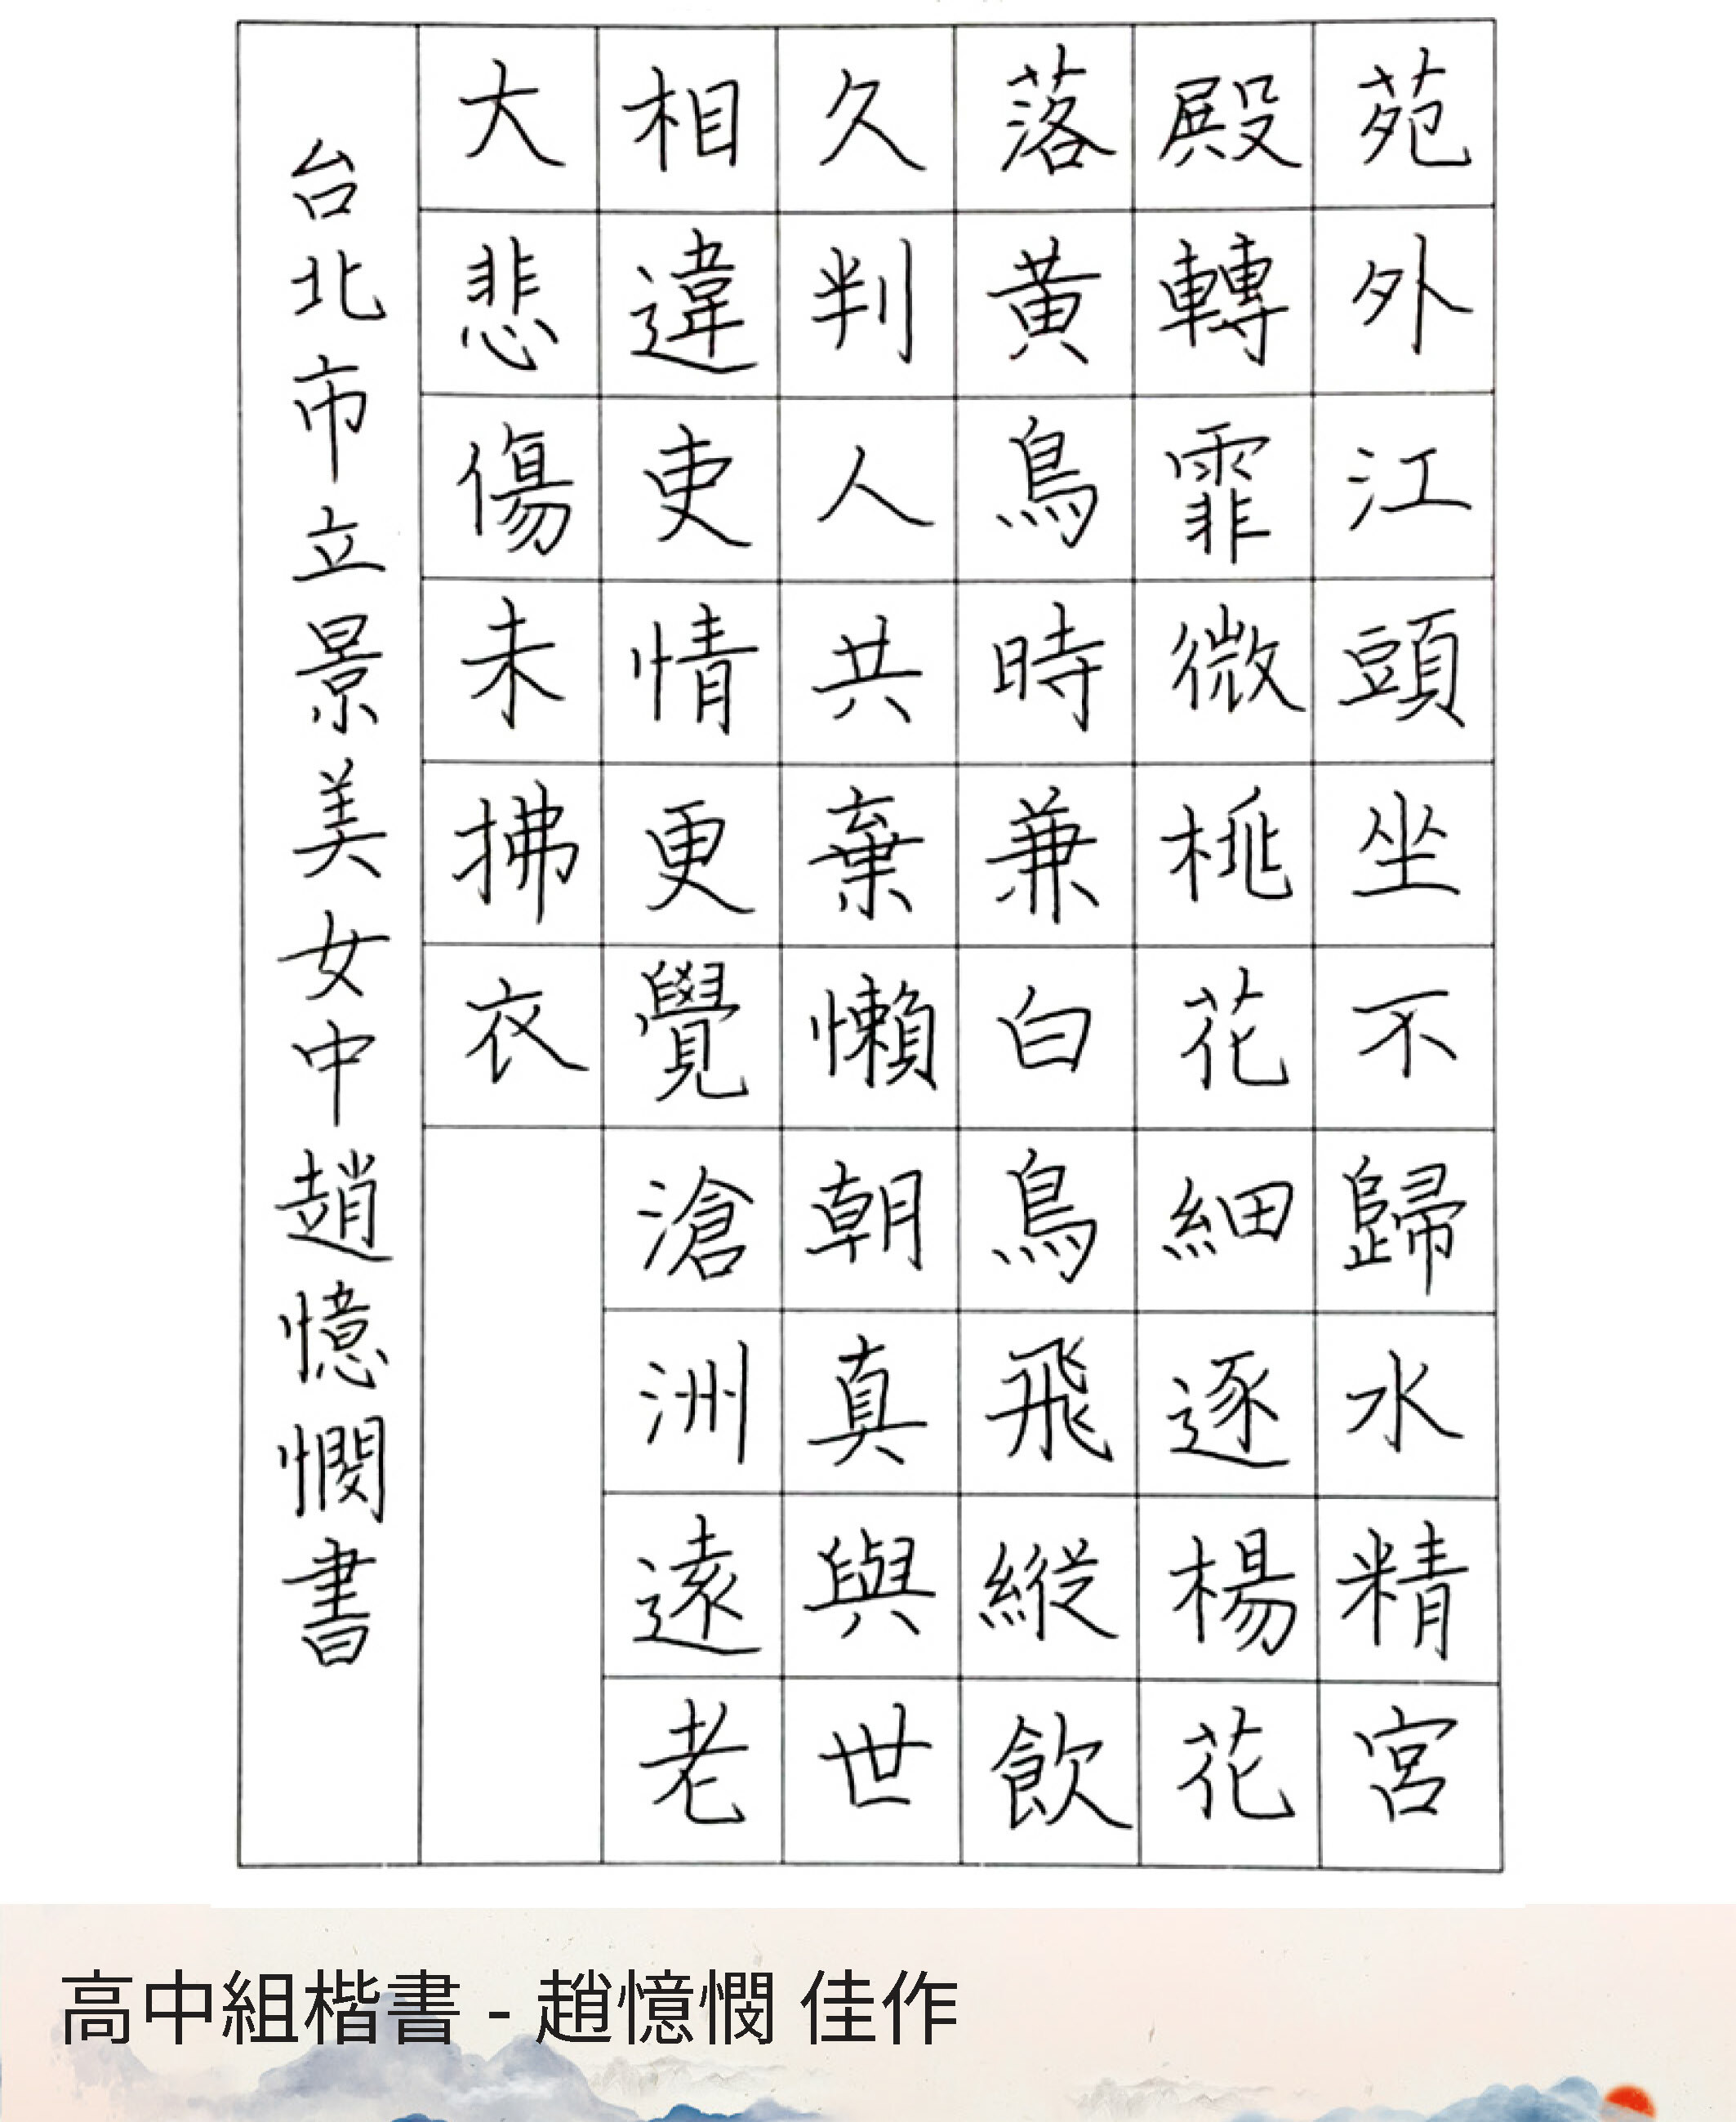 苑外江頭坐不歸水精宮
殿轉霏微桃花細逐楊花
落黃鳥時兼白鳥飛縱飲
久判人共棄懶朝真與世
相違吏情更覺滄洲遠老
大悲傷未拂衣
台北市立景美女中趙憶憫書
高中組楷書 - 趙憶憫 佳作